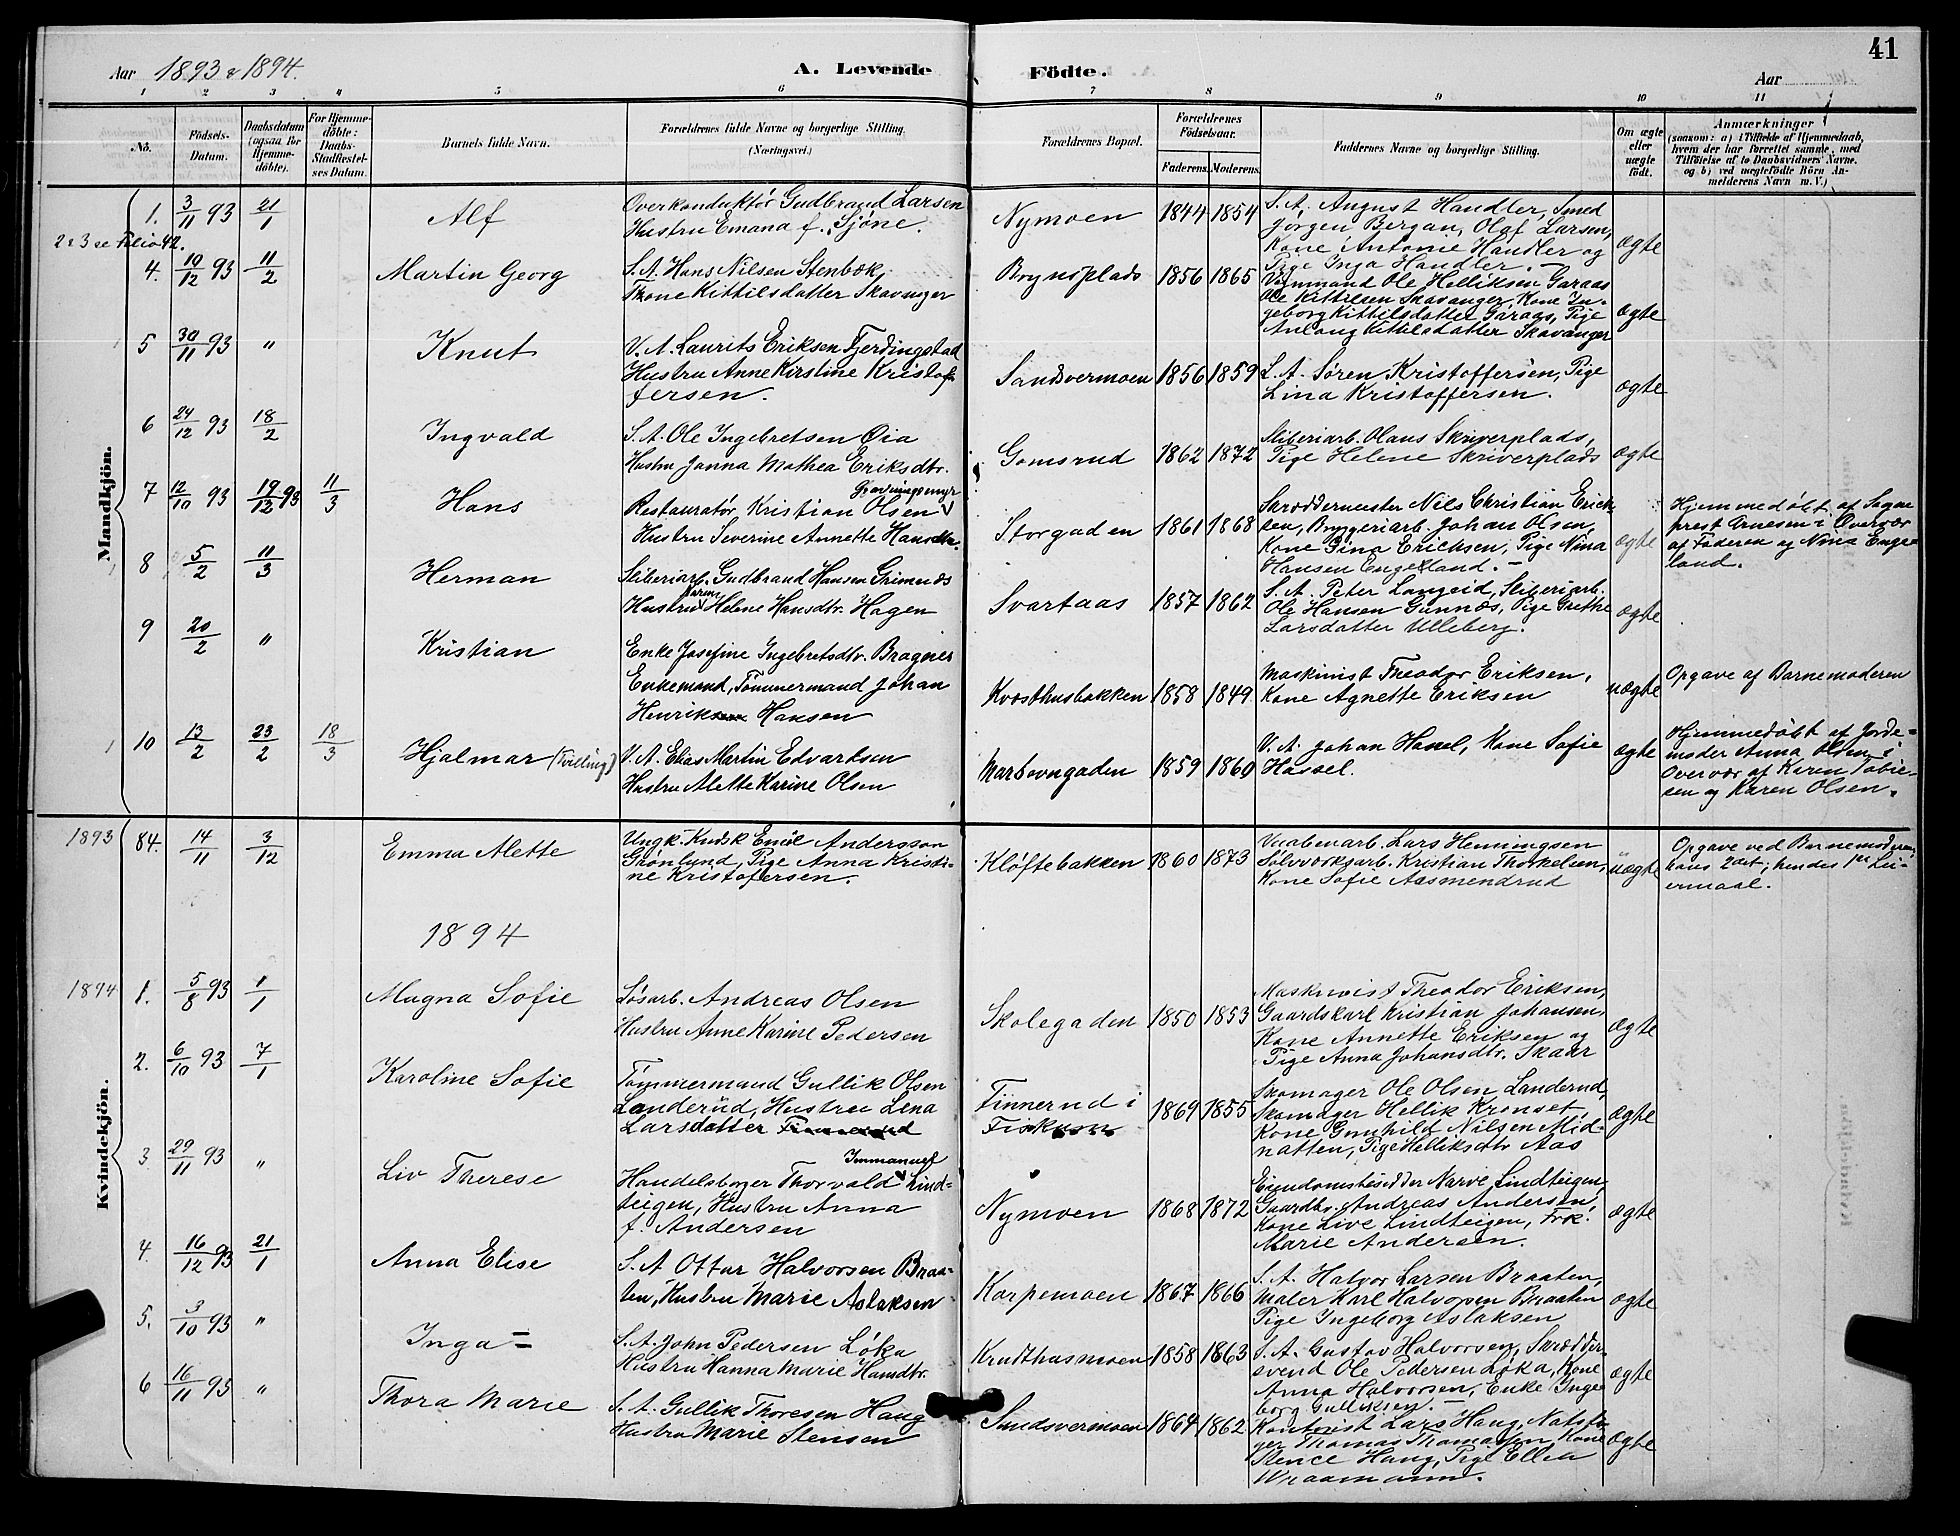 41
Aar 1893 & 1894.
A. Levende Födte.
Aar
1 2 3 4 5 6 7 8 9 10 11
No.
Födsels-Datum.
Daabsdatum (ogsaa for Hjemmedöbte).
For Hjemmedöbte: Daabs-Stadfæstelses Datum.
Barnets fulde Navn.
Forældrenes fulde Navne og borgerlige Stilling. (Næringsvei.)
Forældrenes Bopæl.
Forældrenes Födselsaar.
Faderens. Moderens.
Faddernes Navne og borgerlige Stilling.
Om ægte eller uægte födt.
Anmærkninger
(saasom: a) i Tilfælde af Hjemmedaab, hvem der har forrettet samme, med Tilföielse af to Daabsvidners Navne, og b) ved uægtefödte Börn Anmelderens Navn m. V.)
Mandkjön.
1. 3/11 93 21/1 Alf
Overkonduktør Gudbrand Larsen
Hustru Emana f. Sjøne.
Nymoen 1844 1854
S. A. August Handler, Smed
Jørgen Bergan, Olaf Larsen,
Kone Antonie Handler og
Pige Inga Handler. —
ægte
2 & 3 se Folio 42.
4. 10/12 93 11/2 Martin Georg
S. A. Hans Nilsen Stenbæk,
Kone Kittilsdatter Skavanger
Brynsplads 1856 1865
Ole Helliksen Garaas
Ole Kittilsen Skavanger, Kone In-
geborg Kittilsdatter Garaas, Pige
Anlaug Kittilsdatter Skavanger
ægte
5 30/11 93 " Knut
V. A. Laurits Eriksen Fjerdingstad
Hustru Anne Kirstine Kristof
fersen.
Sandsvermoen 1856 1859
S. A. Søren Kristoffersen, Pige
Lina Kristoffersen.
ægte
6 24/12 93 18/2 Ingvald
S. A. Ole Ingebretsen Øia
Hustru Janna Mathea Eriksdtr.
Gomsrud 1862 1872
Sliberiarb. Olaus Skriverplads,
Pige Helene Skriverplads
ægte
7 12/10 93 19/12 93 11/3 Hans
Restauratør Kristian Olsen
Hustru Severine Annette Hansdtr.
Storgaden 1861 1868
Skræddermester Nils Christian Erick-
sen, Bryggeriarb. Johan Olsen,
Kone Gina Ericksen, Pige Nina
Hansen Engeland. —
ægte
Hjemmedøbt af Sogne
prest Arnesen i Overvær
af Faderen og Nina Enge-
land.
8 5/2 11/3 Herman
Sliberiarb. Gudbrand Hansen Grimnæs
Hustru Karen Helene Hansdtr. Hagen
Svartaas 1857 1862
S. A. Peter Langeid, Sliberiarb.
Ole Hansen Gunnæs, Pige Grethe
Larsdatter Ulleberg.
ægte
9 20/2 " Kristian
Enke Josefine Ingebretsdtr. Bragnes
Enkemand, Tømmermand Johan
Henrik Hansen
Kvæsthusbakken 1858 1849
Maskinist Theodor Eriksen,
Kone Agnette Eriksen
uægte
Opgave af Barnemoderen
10 13/2 23/2 18/3 Hjalmar (Tvilling)
V. A. Elias Martin Edvardsen
Hustru Alette Karine Olsen
Narbovngaden 1859 1860
V. A. Johan Hassel, Kone Sofie
Hassel.
ægte
Hjemmedøbt af Jorde-
moder Anna Olsen i
Overvær af Karen Tobie-
sen og Karen Olsen.
Kvindekjön.
1893 84. 14/11 3/12 Emma Alette
Ungk. Kudsk Emil Andersson
Grønlund, Pige Anna Kristi-
ne Kristofersen.
Kløftebakken 1860 1873
Vaabenarb. Lars Henningsen
Sølvværksarb. Kristian Thorkelsen,
Kone Sofie Aasmendrud
uægte
Opgave ved Barnemoderen,
hans 2det, hendes 1ste Lei-
ermaal.
1894
1894 1. 5/8 93 1/1 Magna Sofie
Løsarb. Andreas Olsen
Hustru Anne Karine Pedersen
Skolegaden 1850 1853
Maskinist Theodor Eriksen,
Gaardskarl Kristian Johansen,
Kone Annette Eriksen og
Pige Anna Johansdtr. Skaar
ægte
2. 6/10 93 7/1 Karoline Sofie
Tømmermand Gullik Olsen
Landerud, Hustru Lena
Larsdatter
Finnerud i
Fiskum
1869 1855
Skomager Ole Olsen Landerud,
Skomager Hellik Kronset
Kone Gunhild Nilsen Mid-
natten, Pige Helliksdtr Aas
ægte
3 29/11 93 " Liv Therese
Handelsborger Thorvald Immanuel Lind-
teigen, Hustru Anna
f. Andersen
Nymoen 1868 1872
Eiendomsbesidder Narve Lindteigen,
Gaardbr. Andreas Andersen,
Kone Live Lindteigen, Frk.
Marie Andersen.
ægte
4. 16/12 93 21/1 Anna Elise
S. A Ottar Halvorsen Braa-
ten, Hustru Marie Aslaksen
Karpemoen 1867 1866
S. A. Halvor Larsen Braaten,
Maler Karl Halvorsen Braaten
Pige Ingeborg Aslaksen
ægte
5. 3/10 93 " Inga =
S. A. John Pedersen Løka
Hustru Hanna Marie Hansdtr.
Krudthusmoen 1858 1863
S. A. Gustav Halvorsen, Skrædder-
svend Ole Pedersen Løka, Kone
Anna Halvorsen, Enke Inge-
borg Gulliksen. —
ægte
6 16/11 93 " Thora Marie
S. A. Gullik Thoresen Haug
Hustru Marie Stensen
Sandsvermoen 1864 1862
Kontorist Lars Haug,
Thomas Thomassen, Kone
Haug, Pige Ellen
ægte